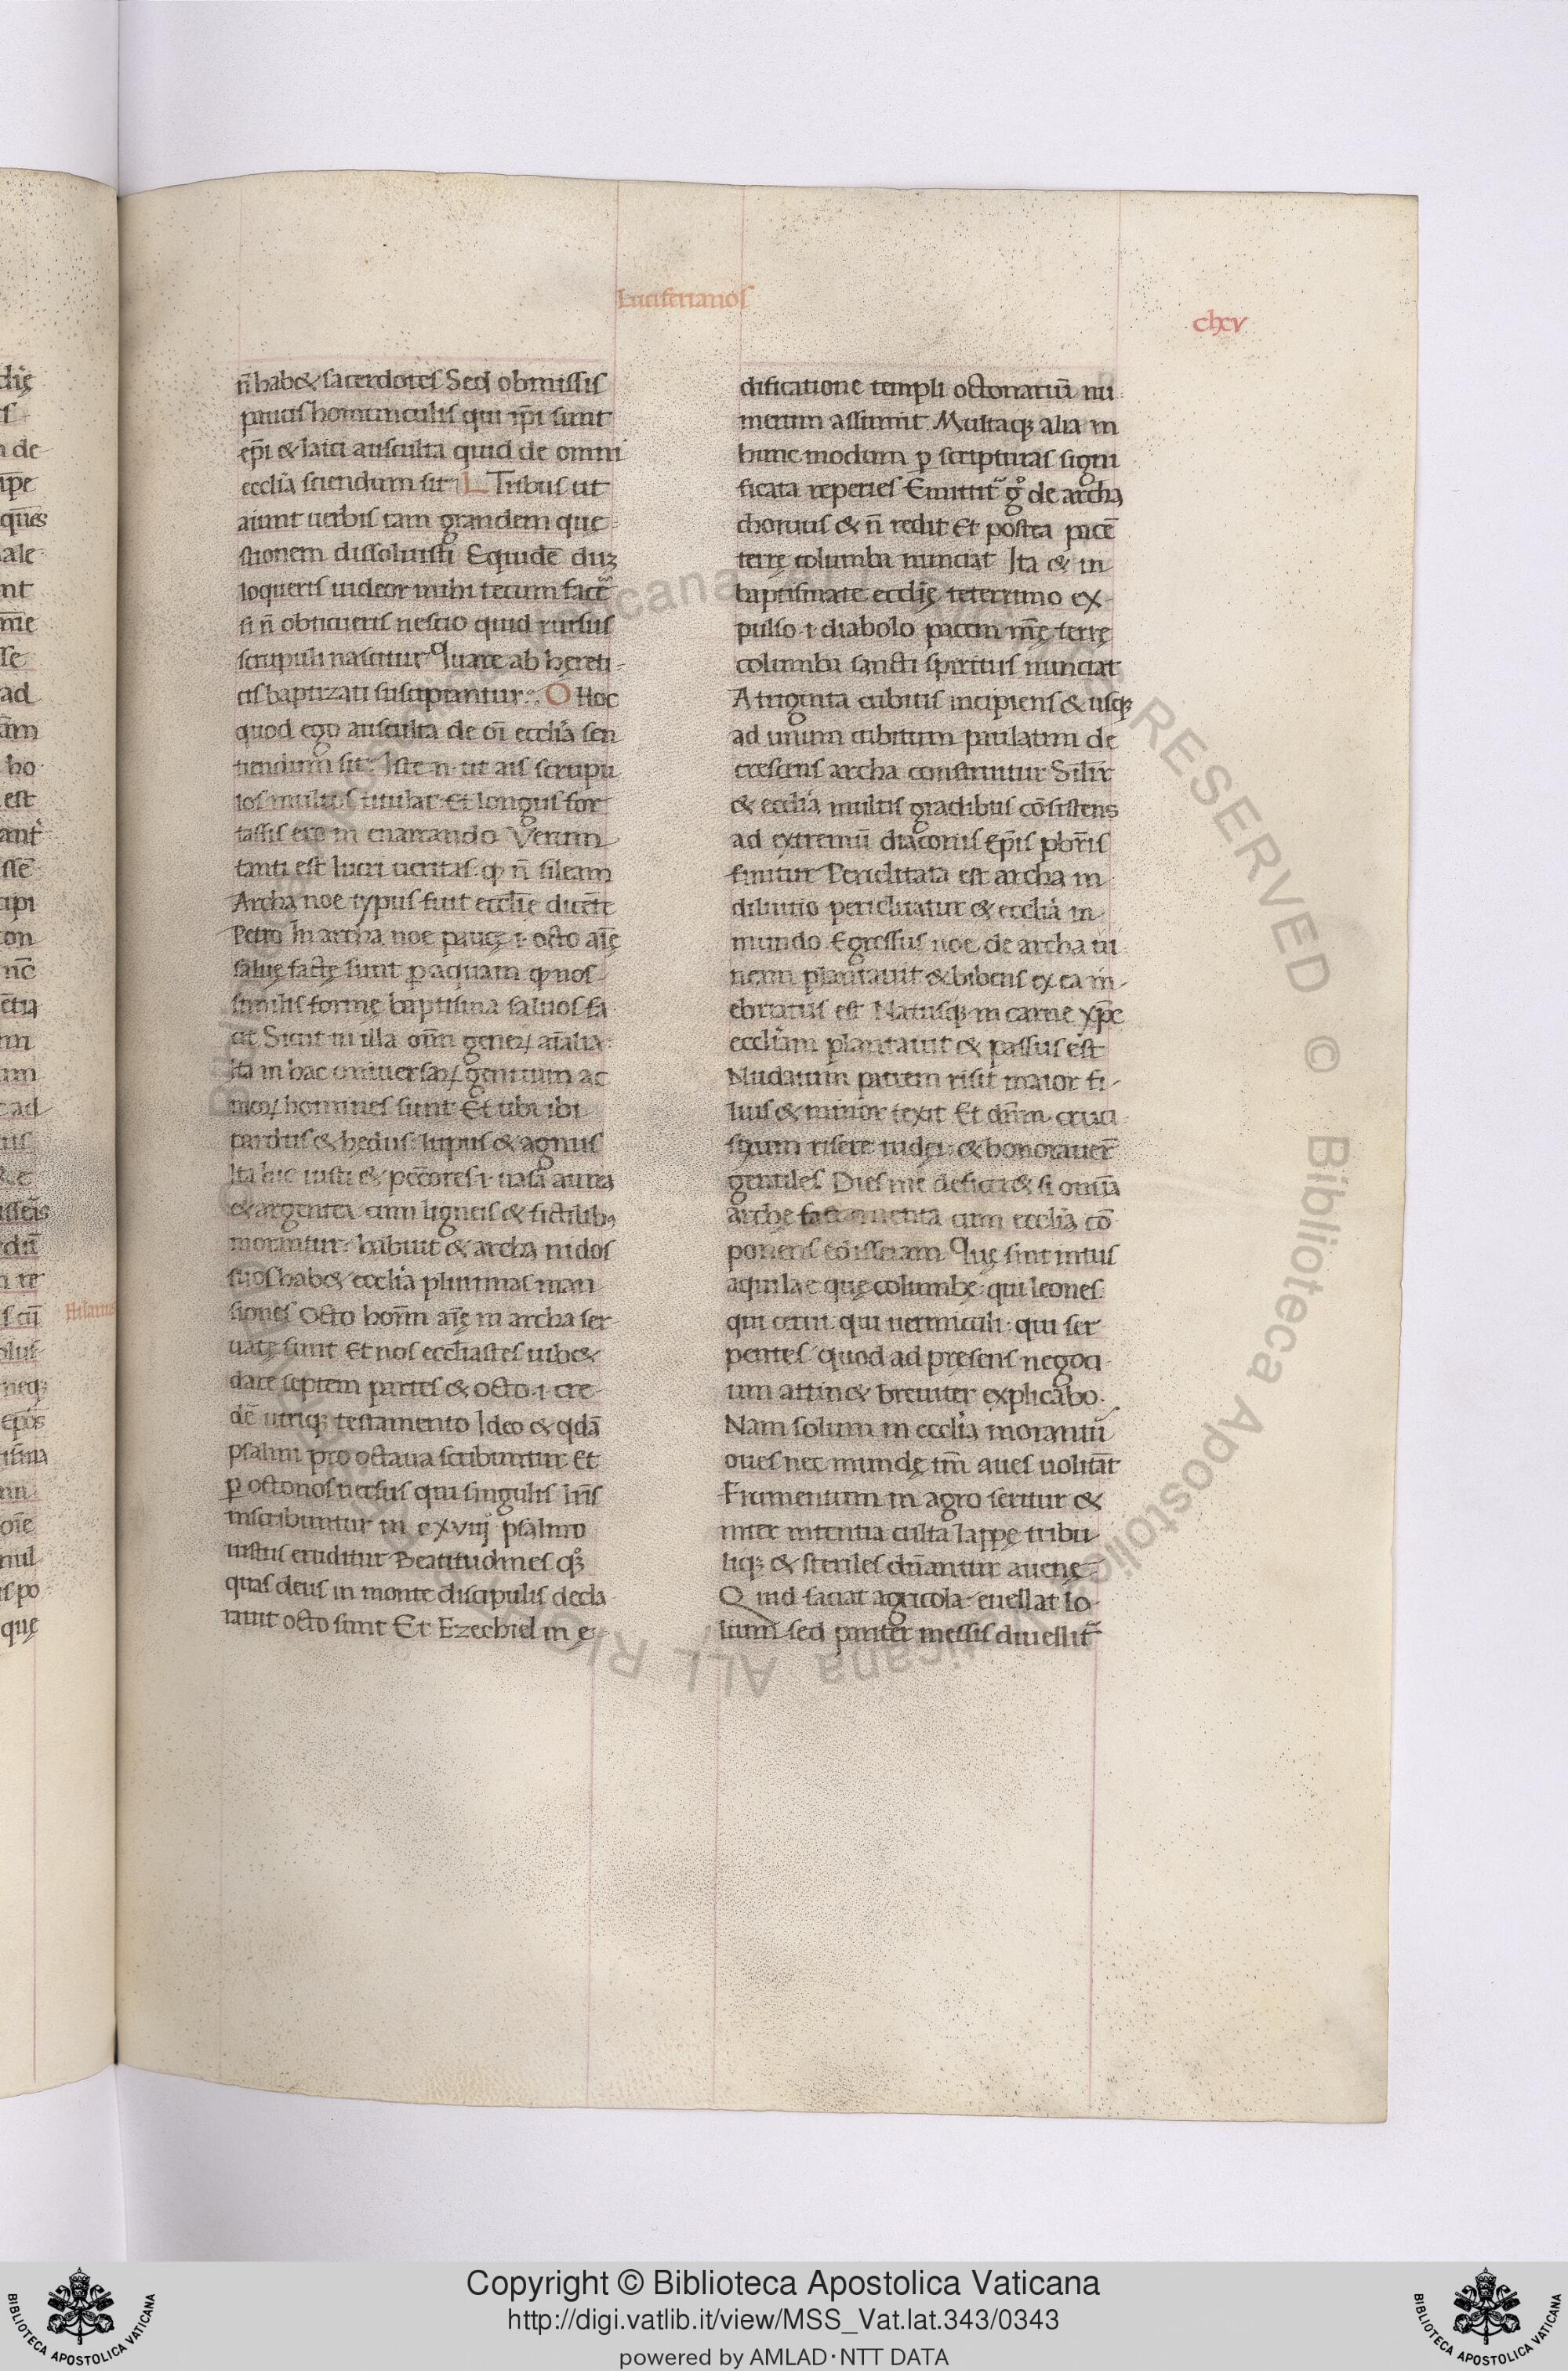 Luciferianos
clxv
n̄ habe& sacerdotes Sed obmissis
paucis homunculis qui ip̄i sunt
ep̄i & laici ausculta quid de omni
eccl̄ia sciendum sit L Tribus ut
aiunt uerbis tam grandem que-
stionem dissoluisti Equidē dū
loqueris uideor mihi tecum facē
si n̄ obticueris nescio quid rursus
scrupuli nascitur Quare ab hereti-
cis baptizati suscipiantur. O Hoc
quod ego ausculta de oī eccl̄ia sen
tiendum sit. Iste n. ut ais scrupu
los multos titulat Et longus for
tassis ero in enarrando Verum
tanti est lucri ueritas q̄ n̄ sileam
Archa noe typus fuit eccl̄ie dicēte
Petro In archa noe paucę .i. octo aīę
saluę factę sunt p aquam q̄ nos
similis formę baptisma saluos fa
cit Sicut in illa oīm generꝝ aīalia
Ita in hac uniuersarꝝ gentium ac
morꝝ homines sunt Et ubi ibi
pardus & hędus lupus & agnus
Ita hic iusti & pecc̄ores .i. uasa aurea
& argentea cum ligneis & fictilibꝫ
morantur. habuit & archa nidos
suos habe& eccl̄ia plurimas man
siones Octo hom̄ aīę in archa ser
uatę sunt Et nos eccl̄iastes iube&
dare septem partes & octo .i. cre
dē utriqꝫ testamento Ideo & qdā
psalmi pro octaua scribuntur Et
p octonos uersus qui singulis lr̄is
inscribuntur in cxviij psalmo
iustus eruditur Beatitudines qꝫ
quas deus in monte discipulis decla
rauit octo sunt Et Ezechiel in e-
dificatione templi octonariū nu-
merum assumit. Multaqꝫ alia in
hunc modum p scripturas signi
ficata reperies Emittit̄ gº de archa
choruus & n̄ redit Et postea pacē
terrę columba nunciat Ita & in
baptismate eccl̄ię teterrimo ex-
pulso .i. diabolo pacem nr̄ę terrę
columba sancti spiritus nunciat
A triginta cubitis incipiens & usqꝫ
ad unum cubitum paulatim de
crescens archa construitur Sil̄ir
& eccl̄ia multis gradibus cōsistens
ad extremū diaconis ep̄is pbr̄is
finitur Periclitata est archa in
diluuio periclitatur & eccl̄ia in
mundo Egressus noe de archa ui
neam plantauit & bibens ex ea in-
ebriatus est Natusqꝫ in carne xp̄c
eccl̄iam plantauit & passus est
Nudatum patrem risit maior fi-
lius & minor texit Et dn̄m cruci
fixum risere iudęi & honorauer̄
gentiles Dies me deficie& si omīa
archę sacramenta cum eccl̄ia cō
ponens edisseram Quę sint intus
aquilae quę columbę qui leones
qui cerui qui uermiculi qui ser
pentes quod ad pręsens negoci
um attine& breuiter explicabo.
Nam solum in eccl̄ia morantū
oues nec mundę tm̄ aues uolitāt
Frumentum in agro seritur &
inter nitentia culta lappę tribu
liqꝫ & steriles dn̄antur auenę
Quid faciat agricola euellat lo
lium sed pariter messis diuellit̄